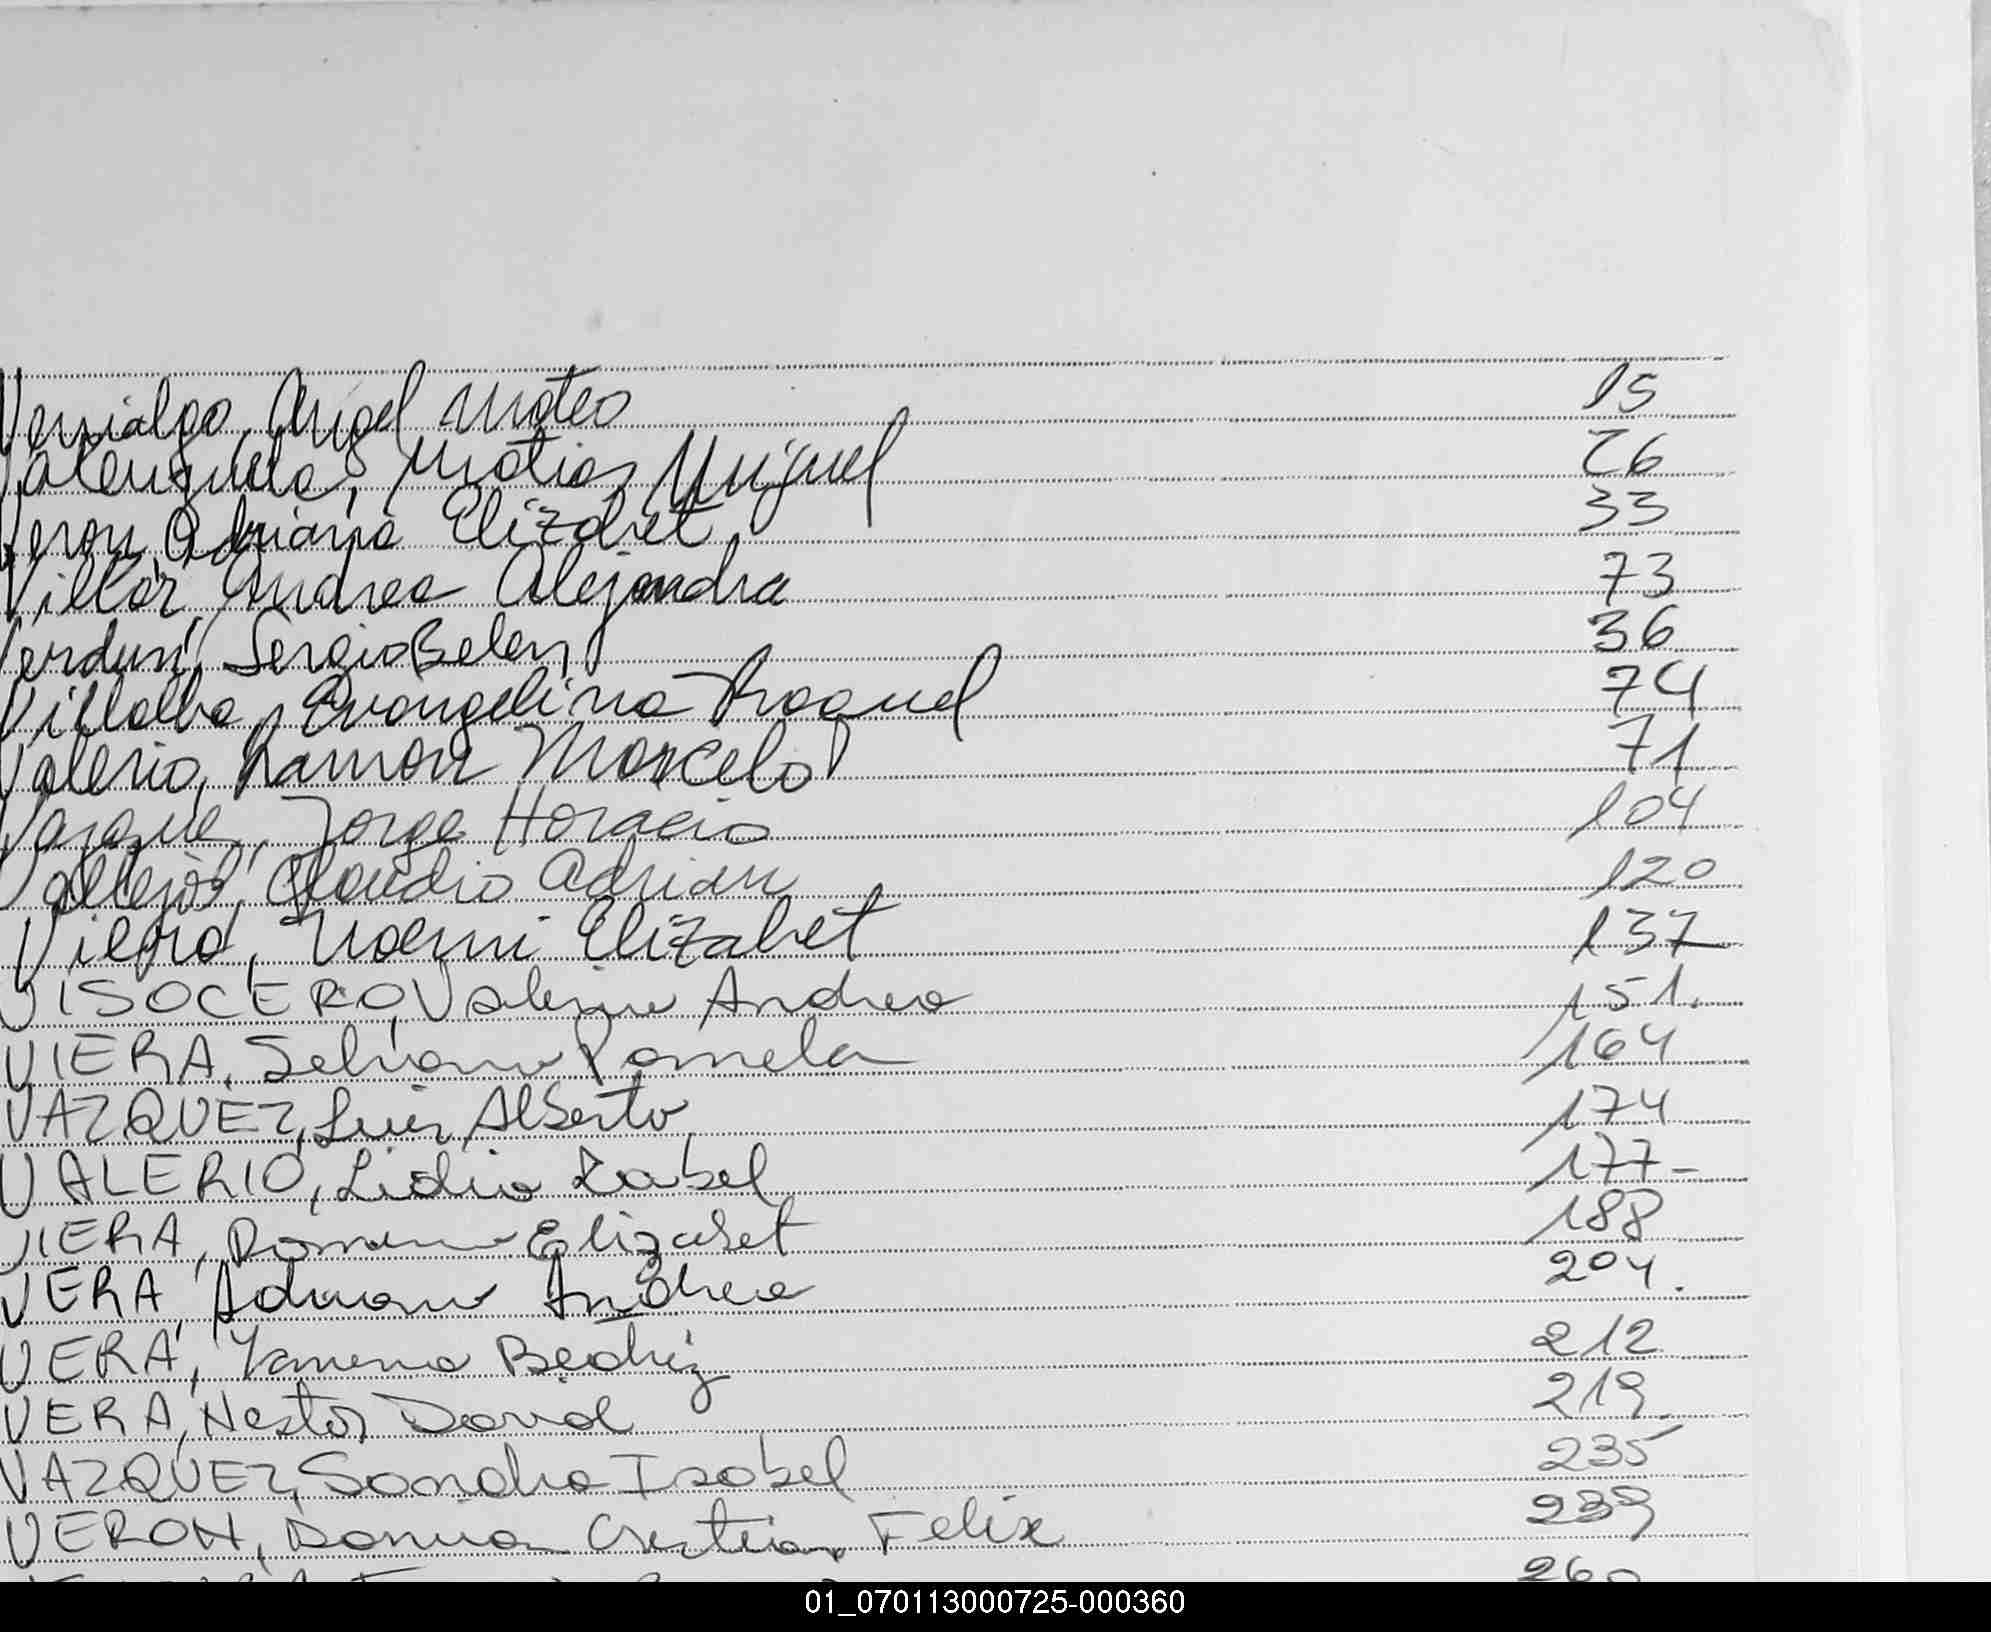 Vernialgo, Angel Mateo 15
Valenzuela, Matias Miguel 26
Veron, Adriana Elizabet 33
Villar, Andrea Alejandra 73
Verdun, Sergio Belen 36
Villalba, Evangelina Raquel 74
Valerio, Ramon Marcelo 71
Jorge Horacio 104
Vallejos, Claudio Adrian 120
Noemi Elizabet 137
VISOCERO, Valeria Andrea 151.
VIERA, Silvana Pamela 164
VAZQUEZ, Luis Alberto 174
VALERIO, Lidia Isabel 177-
VIERA, Romina Elizabet 188
VERA, Adriana Andrea 204.
VERA, Yamena Beatriz 212
VERA, Nestor David 219
VAZQUEZ, Sandra Isabel 235
VERON, Cristian Felix 239
260
01_070113000725-000360